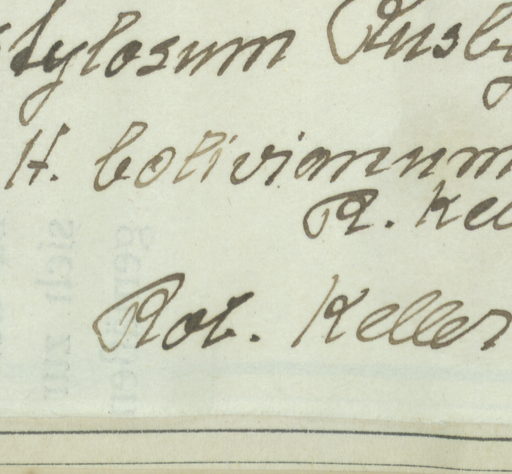 stylosum Rusby
H. bolivianum
R. Kell
Rob. Keller